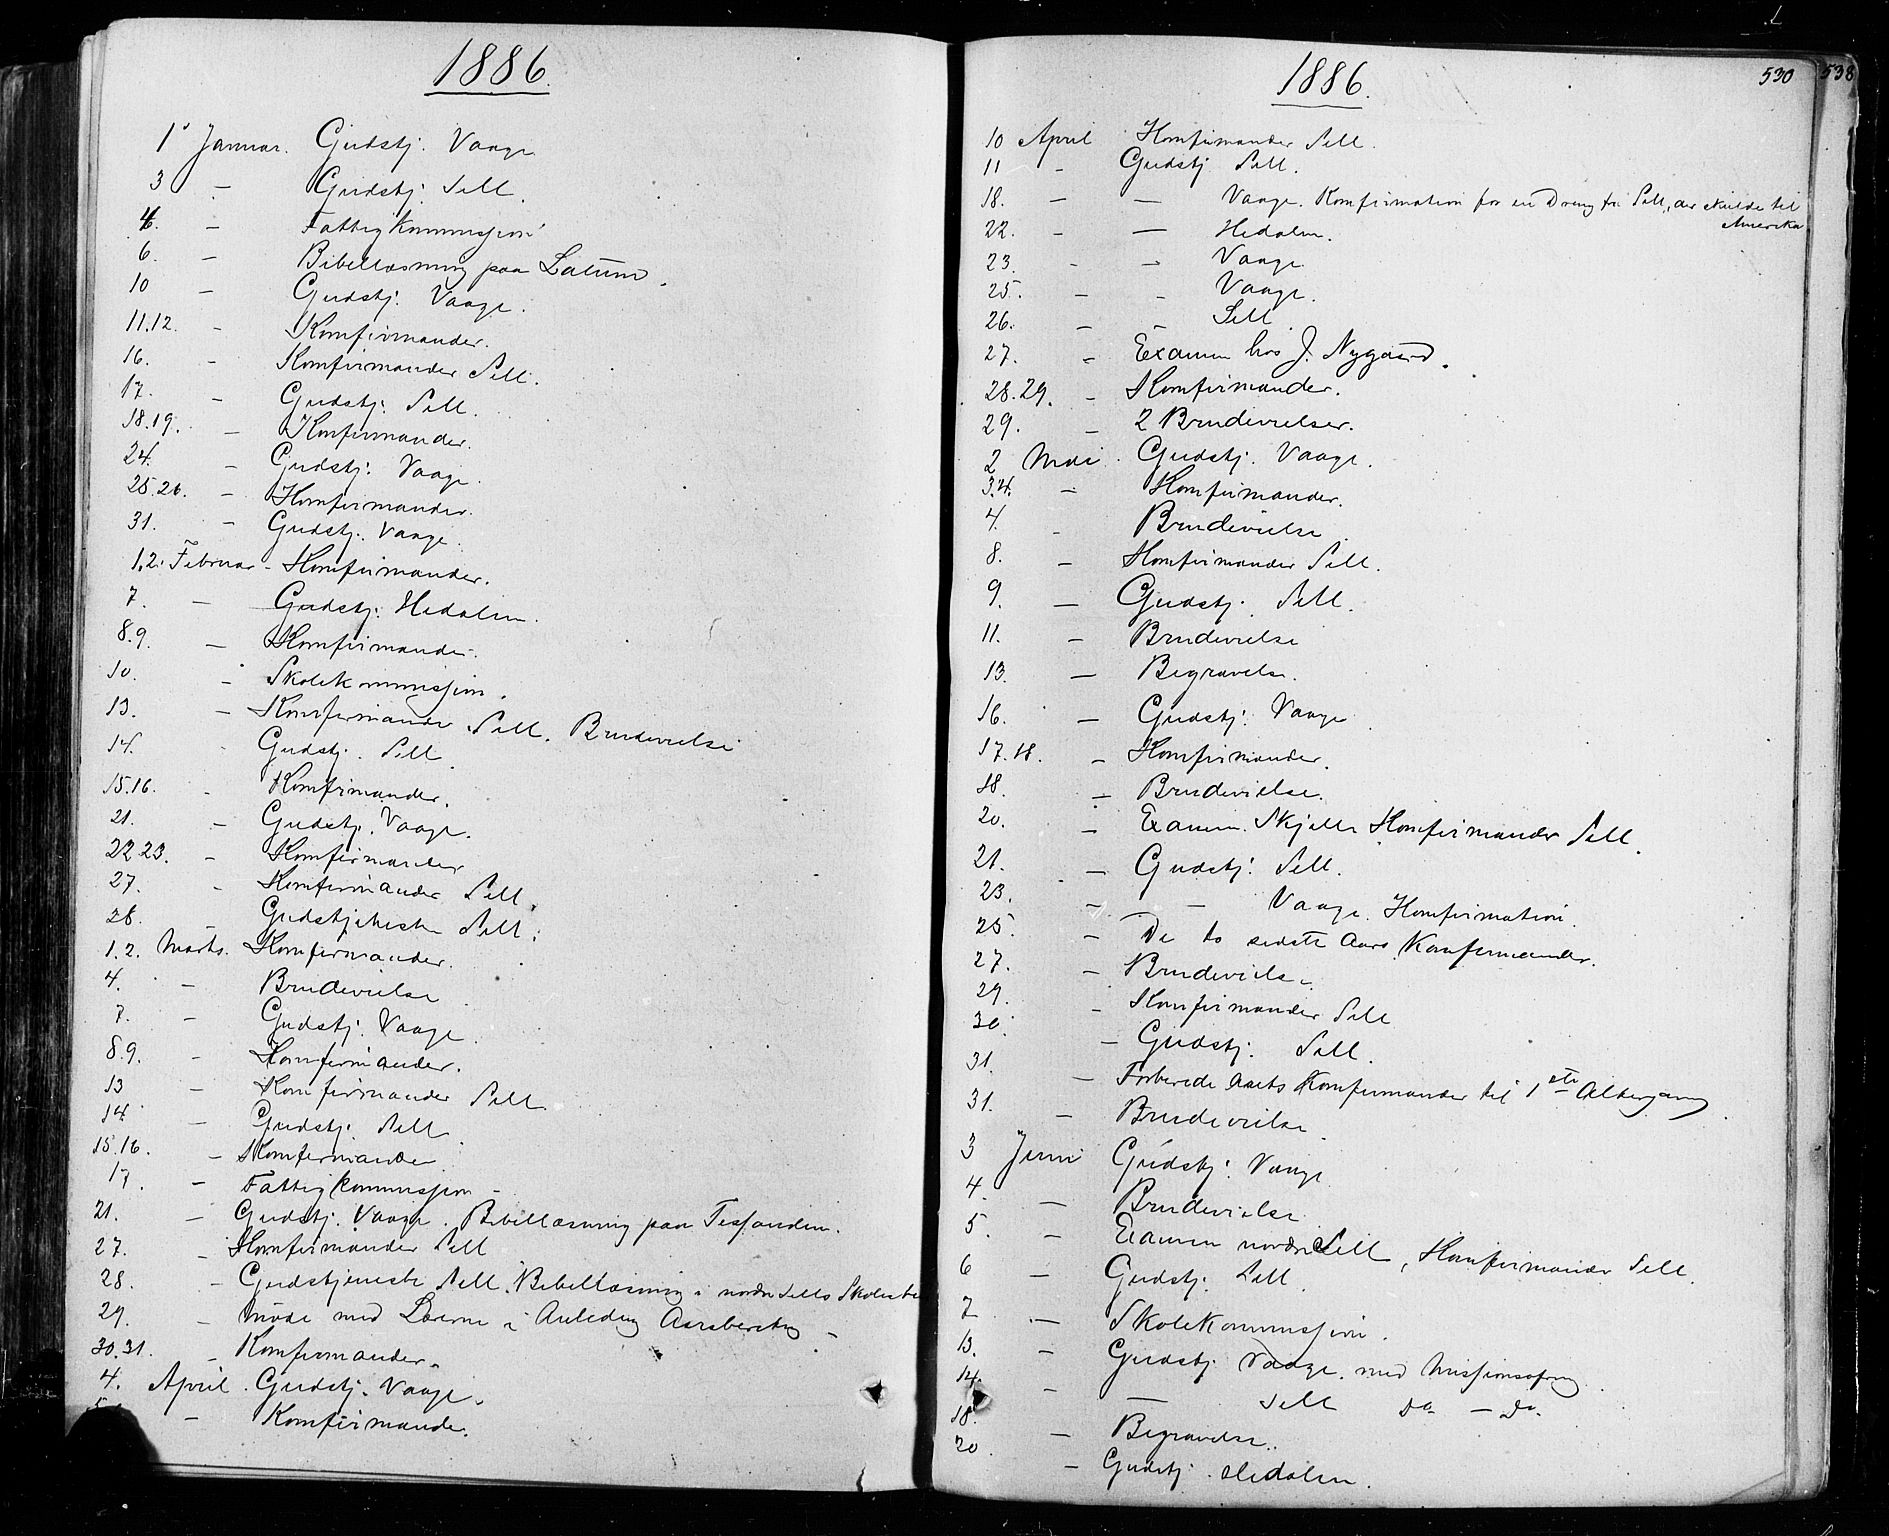 1886.
1 Januar. Gudstj. Vaage
3 – Gudstj. Sell.
4. – Fattigkommission
6. – Bibellæsning paa Lalum.
10 – Gudstj. Vaage.
11.12. – Konfirmander.
16. – Konfirmander Sell.
17. – Gudstj. Sell.
18.19. – Konfirmander.
24. – Gudstj. Vaage.
25.26. – Konfirmander.
31. – Gudstj. Vaage.
1.2. Februar – Konfirmander.
7. – Gudstj. Hedalen.
8.9. – Konfirmander.
10. – Skolekommission.
13. – Konfirmander Sell. Brudevielse
14. – Gudstj. Sell.
15.16. – Konfirmander.
21. – Gudstj. Vaage.
22 23. – Konfirmander
27. – Konfirmander Sell.
28. – Gudstjeneste Sell.
1.2. Marts. Konfirmander.
4. – Brudevielse
7. – Gudstj. Vaage.
8.9. – Konfirmander.
13 – Konfirmander Sell
14 – Gudstj. Sell.
15.16. – Konfirmander
17. – Fattigkommission –
21. – Gudstj. Vaage. Bibellæsning paa Tessanden.
27. – Konfirmander Sell
28. – Gudstjeneste Sell. Bibellæsning i nordre Sells
29. – Møde med Lærerne i Anledng Aarsberetng –
30.31. – Konfirmander.
4. April. Gudstj. Vaage.
– Konfirmander.
1886.
530 538
10 April Konfirmander Sell.
11 – Gudstj. Sell.
18. – – Vaage. Konfirmation for en Dreng fra Sell, der skulde til
Amerika
22. – – Hedalen.
23. – – Vaage
25. – – Vaage.
26. – – Sell.
27. – Examen hos J. Nygaard.
28.29. – Konfirmander.
29. – 2 Brudevielser.
2 Mai. Gudstj. Vaage.
3.4. – Konfirmander.
4. – Brudevielse.
8. – Konfirmander Sell.
9. – Gudstj. Sell.
11. – Brudevielse
13. – Begravelse.
16. – Gudstj. Vaage
17.18. – Konfirmander.
18. – Brudevielse.
20. – Examen. Konfirmander Sell.
21. – Gudstj. Sell.
23. – – Vaage. Konfirmation.
25. – De to sidste Aars Konfirmander.
27. – Brudevielse.
29. – Konfirmander Sell
30. – Gudstj. Sell.
31. – Forberede Aarets Konfirmander til 1ste Altergang.
31. – Brudevielse.
3 Juni Gudstj. Vaage
4. – Brudevielse
5. – Examen nordre Sell, Konfirmander Sell.
6 – Gudstj. Sell
7 – Skolekommission.
13. – Gudstj. Vaage. med Missionsofring.
14. – – Sell Do – Do.
18. – Begravelse.
20 – Gudstj. Hedalen.